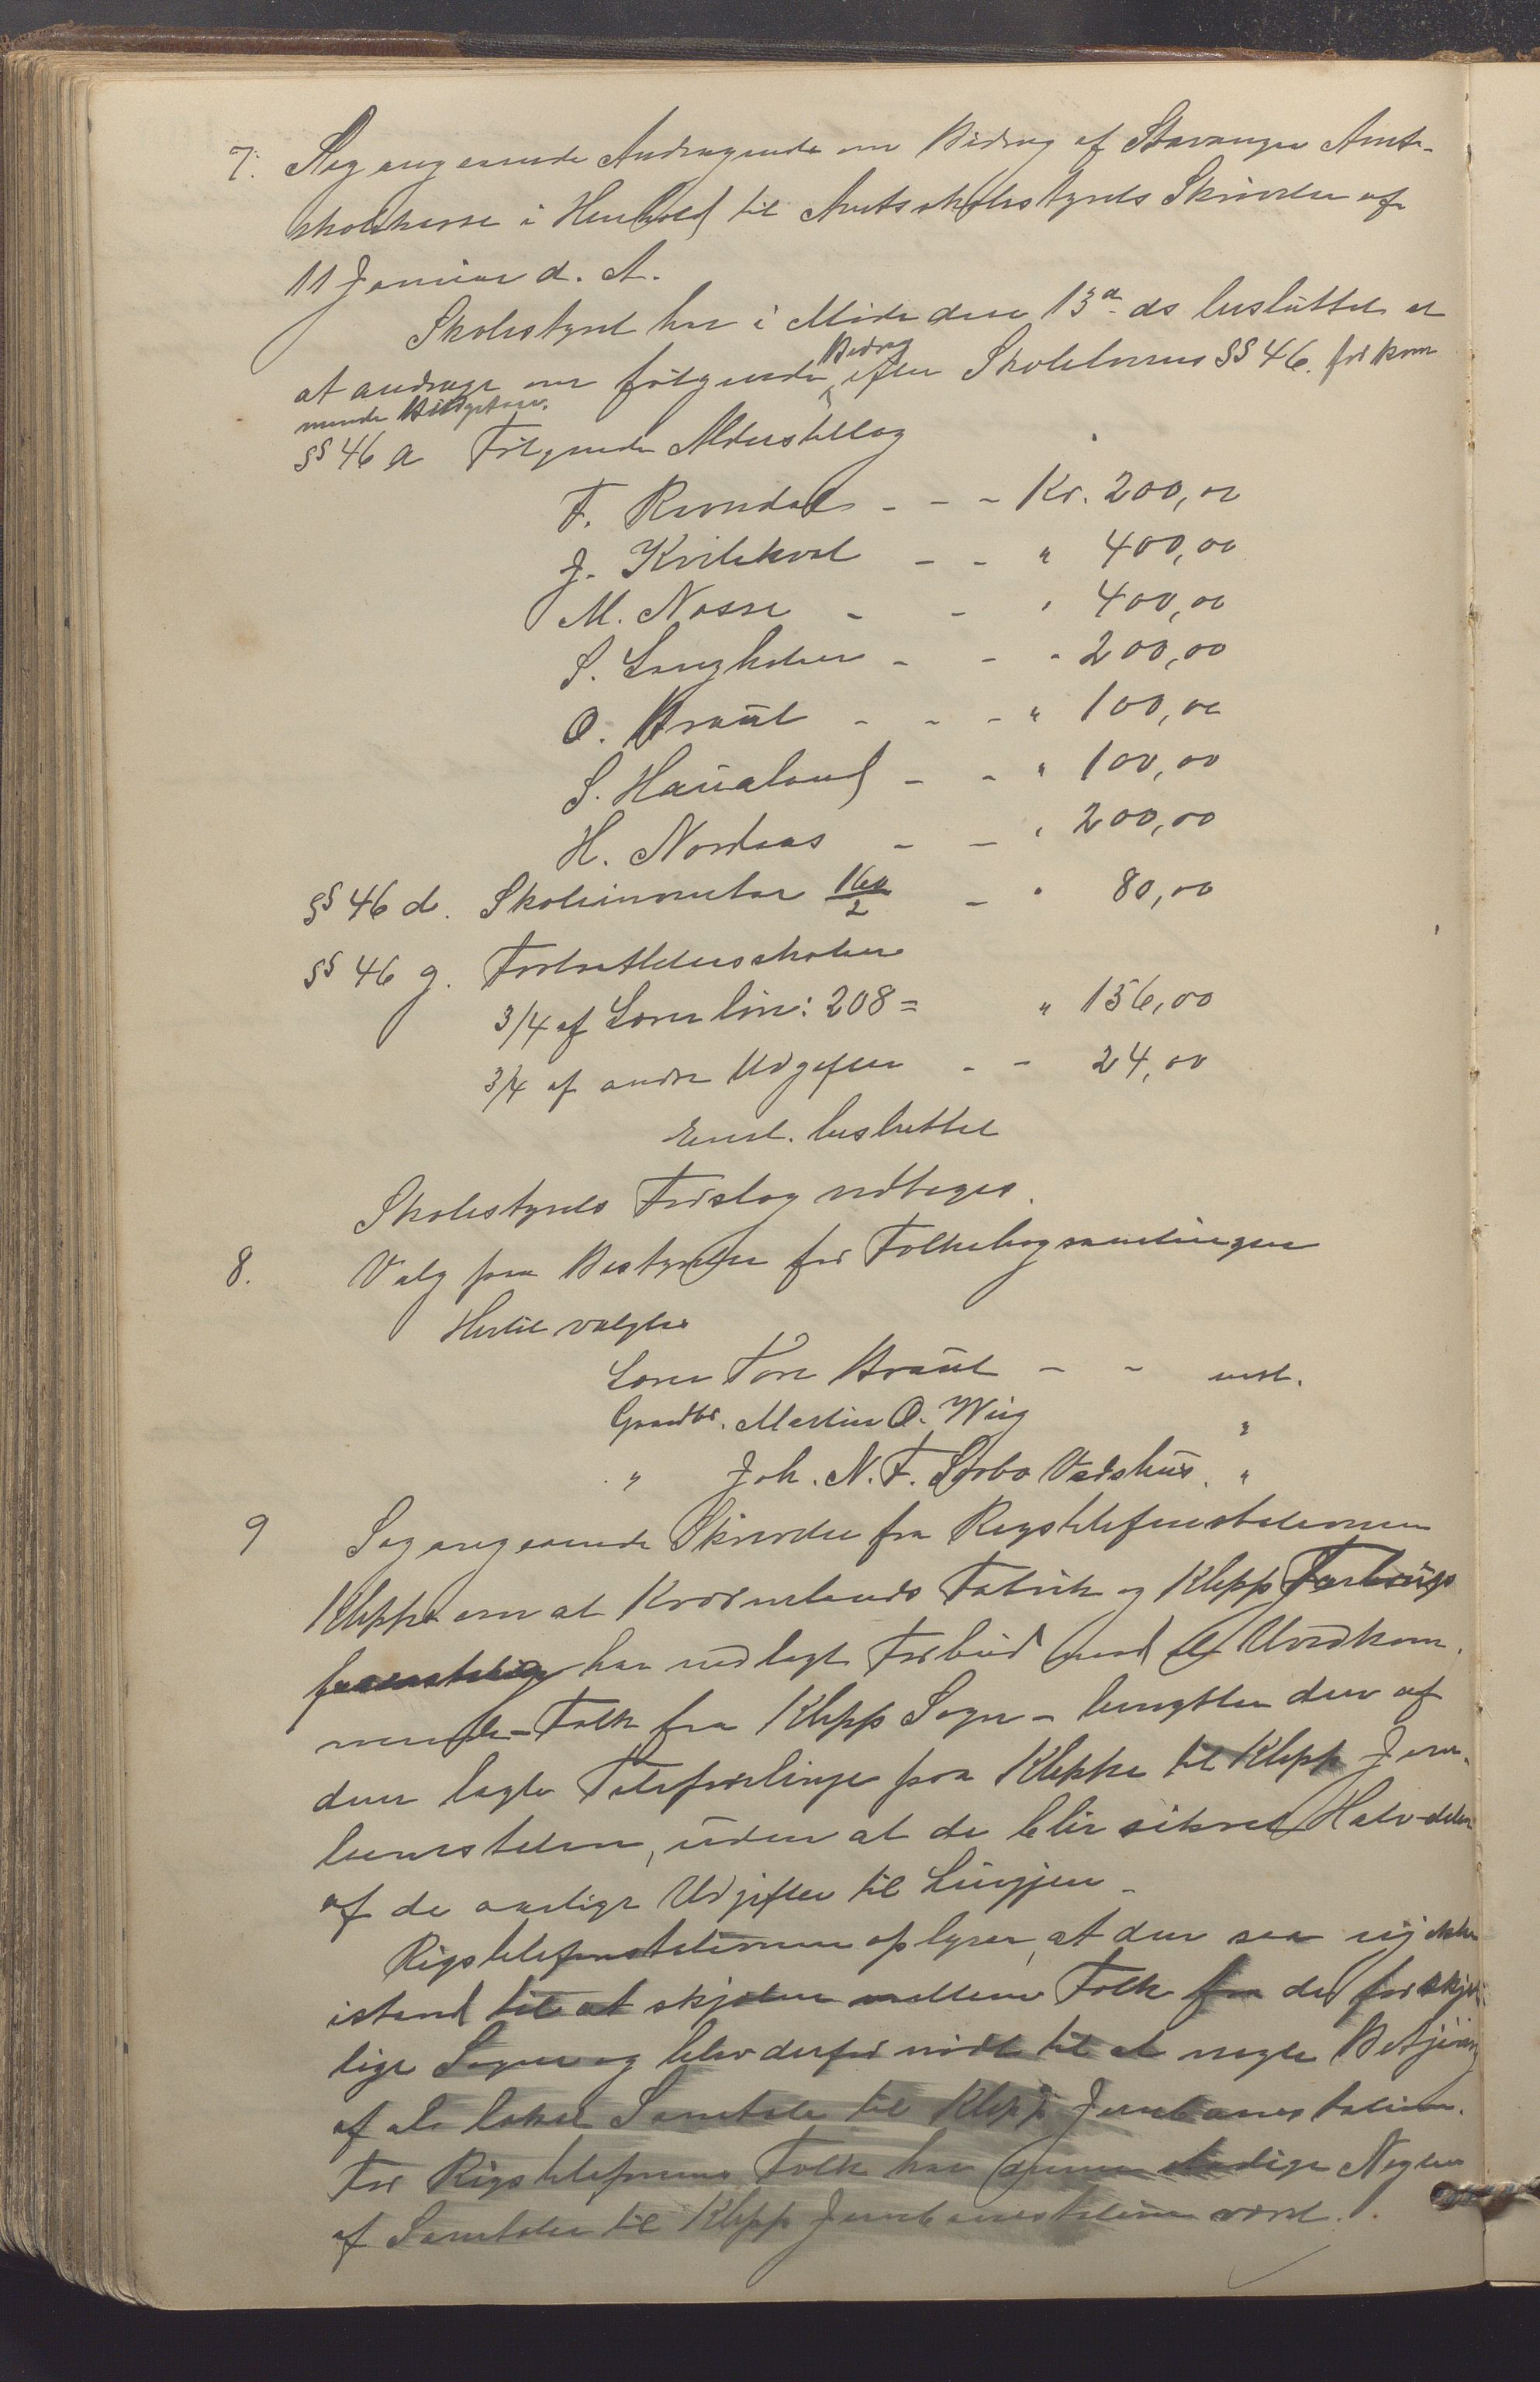 7. Sag angaaende Andragende om Bidrag af Stavanger Amts-
skolekasse i Henhold til Amtsskolestyrets Skrivelse af
11 Januar d. A.
Skolestyret har i Møde den 13de ds besluttet at
at andrage om følgende Bidrag efter Skolelovens §§ 46. for kom
mende Budgetaar.
§§ 46 a Følgende Alderstillæg
F. Revndal - - - Kr. 200,00
J. Kvilekval - - " 400,00
M. Næsse - - " 400,00
S. Langholen - - - 200,00
O. Braut - - - " 100,00
S. Haualand - - " 100,00
H. Nordaas - - " 200,00
§§ 46 d. Skoleinventar 160/2 - " 80,00
§§ 46 g. Fortsættelsesskolen
3/4 af Lærerløn: 208 = " 156,00
3/4 af andre Udgifter - - 24,00
Enst. besluttet
Skolestyrets Forslag vedtages.
8. Valg paa Bestyrelse for Folkebogsamlingen
Hertil valgtes
Lærer Tore Braut - - enst.
Gaardbr. Martin O. Wiig "
" Joh. N. F. Sørbø Vadshus. "
9 Sag angaaende Skrivelse fra Rigstelefonstationen
Kleppe om at Kværnelands Fabrik og Klepp
har nedlagt Forbud mod at Uvedkom
mende - Folk fra Klepp Sogn - benytter den af
dem lagte Telefonlinje fra Kleppe til Klepp Jern-
banestation, uden at de blir sikret Halvdelen
af de aarlige Udgifter til Linjen.
Rigstelefonstationen oplyser, at den saa sig ikke
istand til at skjelne mellem Folk fra de forskjel-
lige Sogne og blev derfor nødt til at negte Betjening
af de lokale Samtaler til Klepp Jernbanestation.
For Rigstelefonens Folk har denne stadige Negten
af Samtaler til Klepp Jernbanestation været